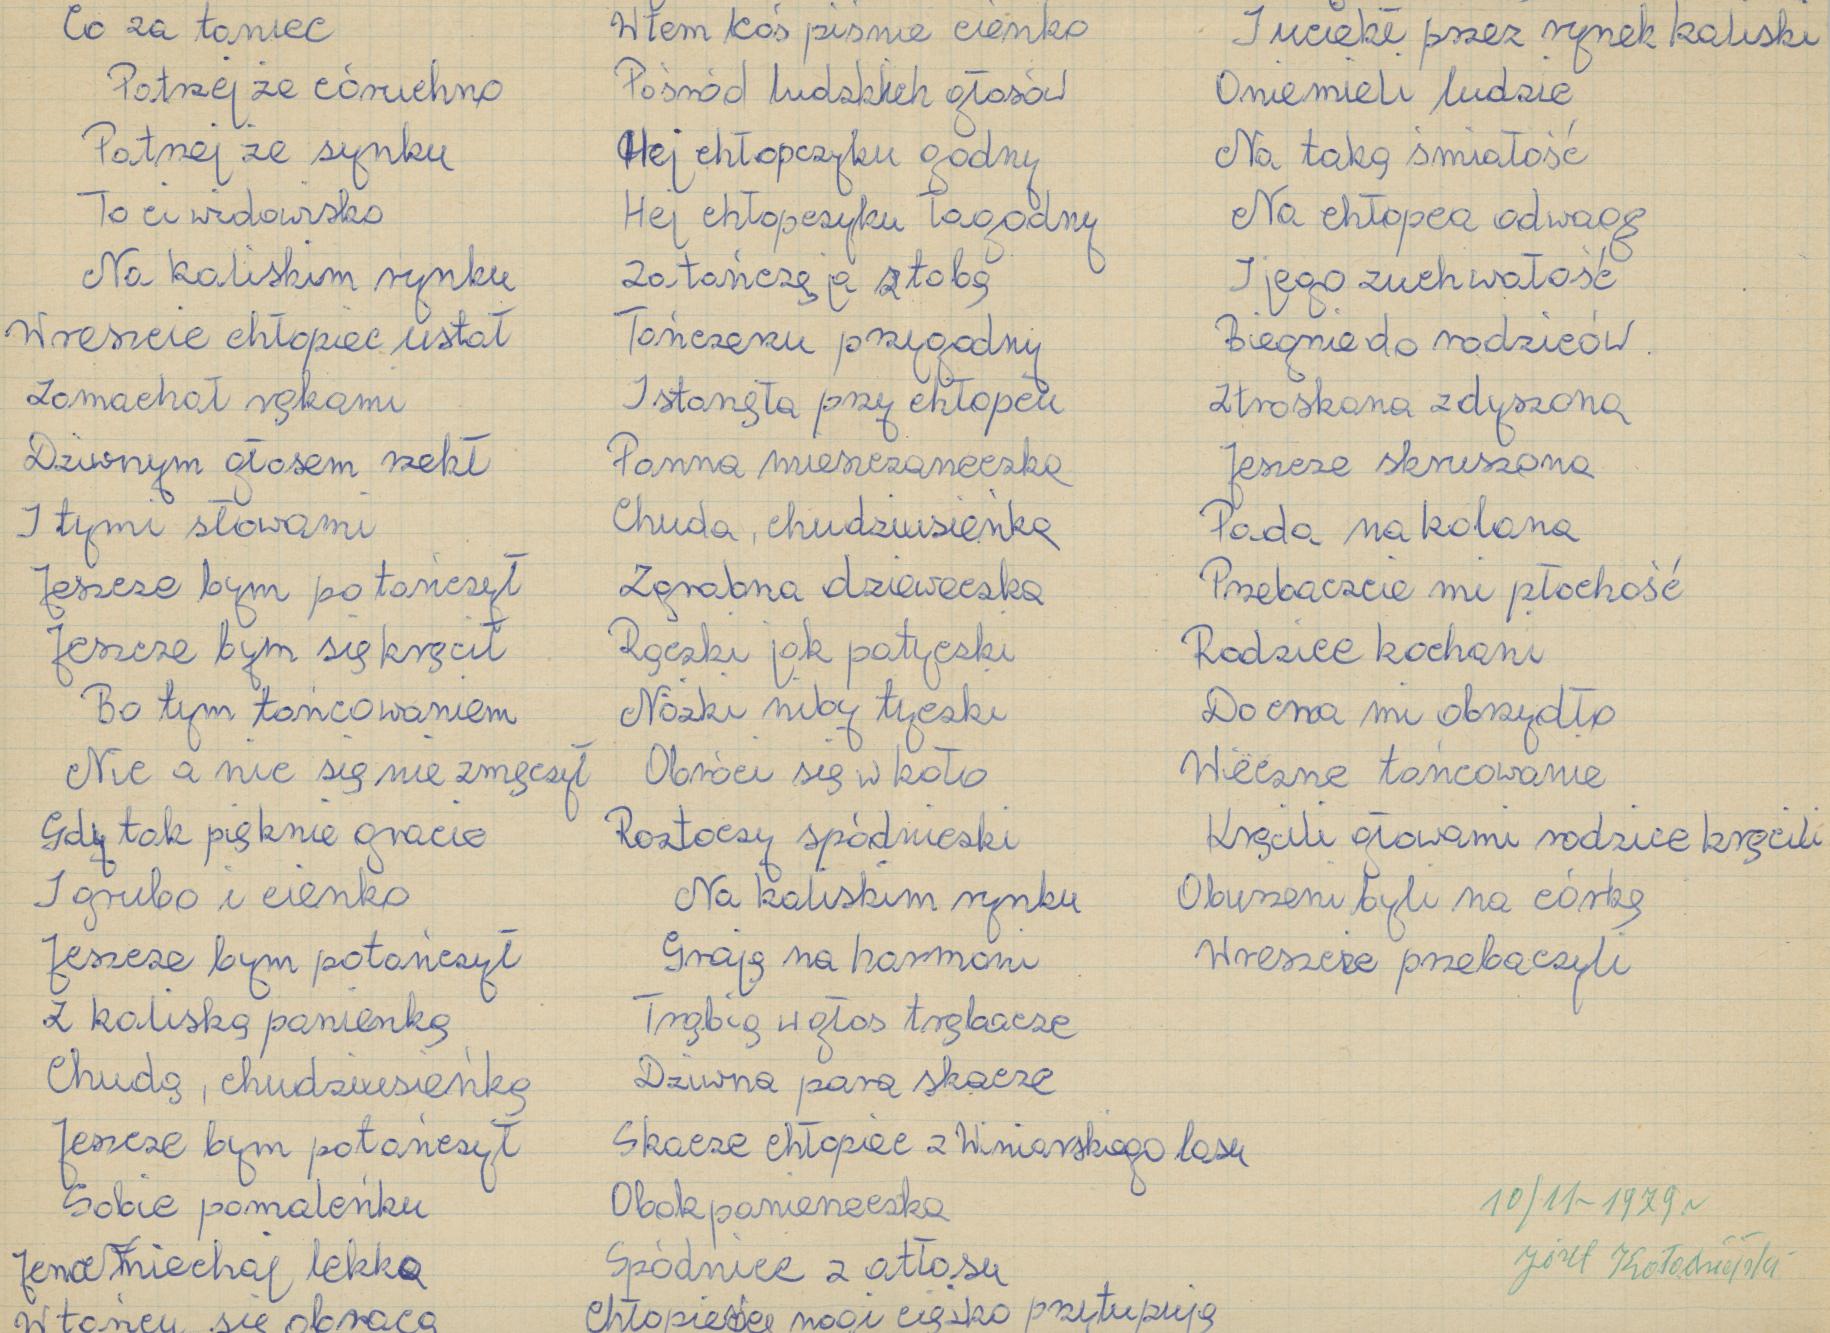 Co za taniec
Patrzej że córuchno
Patrzej że synku
To ci widowisko
Na kaliskim rynku
Wreszcie chłopiec ustał
Zamachał rękami
Dziwnym głosem rzekł
I tymi słowami
Jeszcze bym potańczył
Jeszcze bym się kręcił
Bo tym tańcowaniem
Nic a nic się nie zmęczył
Gdy tak pięknie gracie
I grubo i cienko
Jeszcze bym potańczył
Z kaliską panienką
Chudą, chudziusieńką
Jeszcze bym potańczył
Sobie pomaleńku
niechaj lekko
W tańcu się obraca
Wtem ktoś piśnie cienko
Pośród ludzkich głosów
Hej chłopczyku godny
Hej chłopczyku łagodny
Zatańczę ja z tobą
Tańczeku przygodny
I stanęła przy chłopcu
Panna mieszczaneczka
Chuda, chudziusieńka
Zgrabna dzieweczka
Rączki jak patyczki
Nóżki niby tyczki
Obróci się w koło
Roztoczy spódniczki
Na kaliskim rynku
Grają na harmoni
Trąbią w głos trębacze
Dziwna para skacze
Skacze chłopiec z Winiarskiego lasu
Obok panieneczka
Spódnice z atłasu
nogi ciężko przytupują
I uciekł przez rynek kaliski
Oniemieli ludzie
Na taką śmiałość
Na chłopca odwagę
I jego zuchwałość
Biegnie do rodziców.
Ztroskana zdyszana
Jeszcze skruszona
Pada na kolana
Przebaczcie mi płochość
Rodzice kochani
Do cna mi obrzydło
Wieczne tańcowanie
Kręcili głowami rodzice kręcili
Oburzeni byli na córkę
Wreszcie przebaczyli
10/11-1979 r
Józef